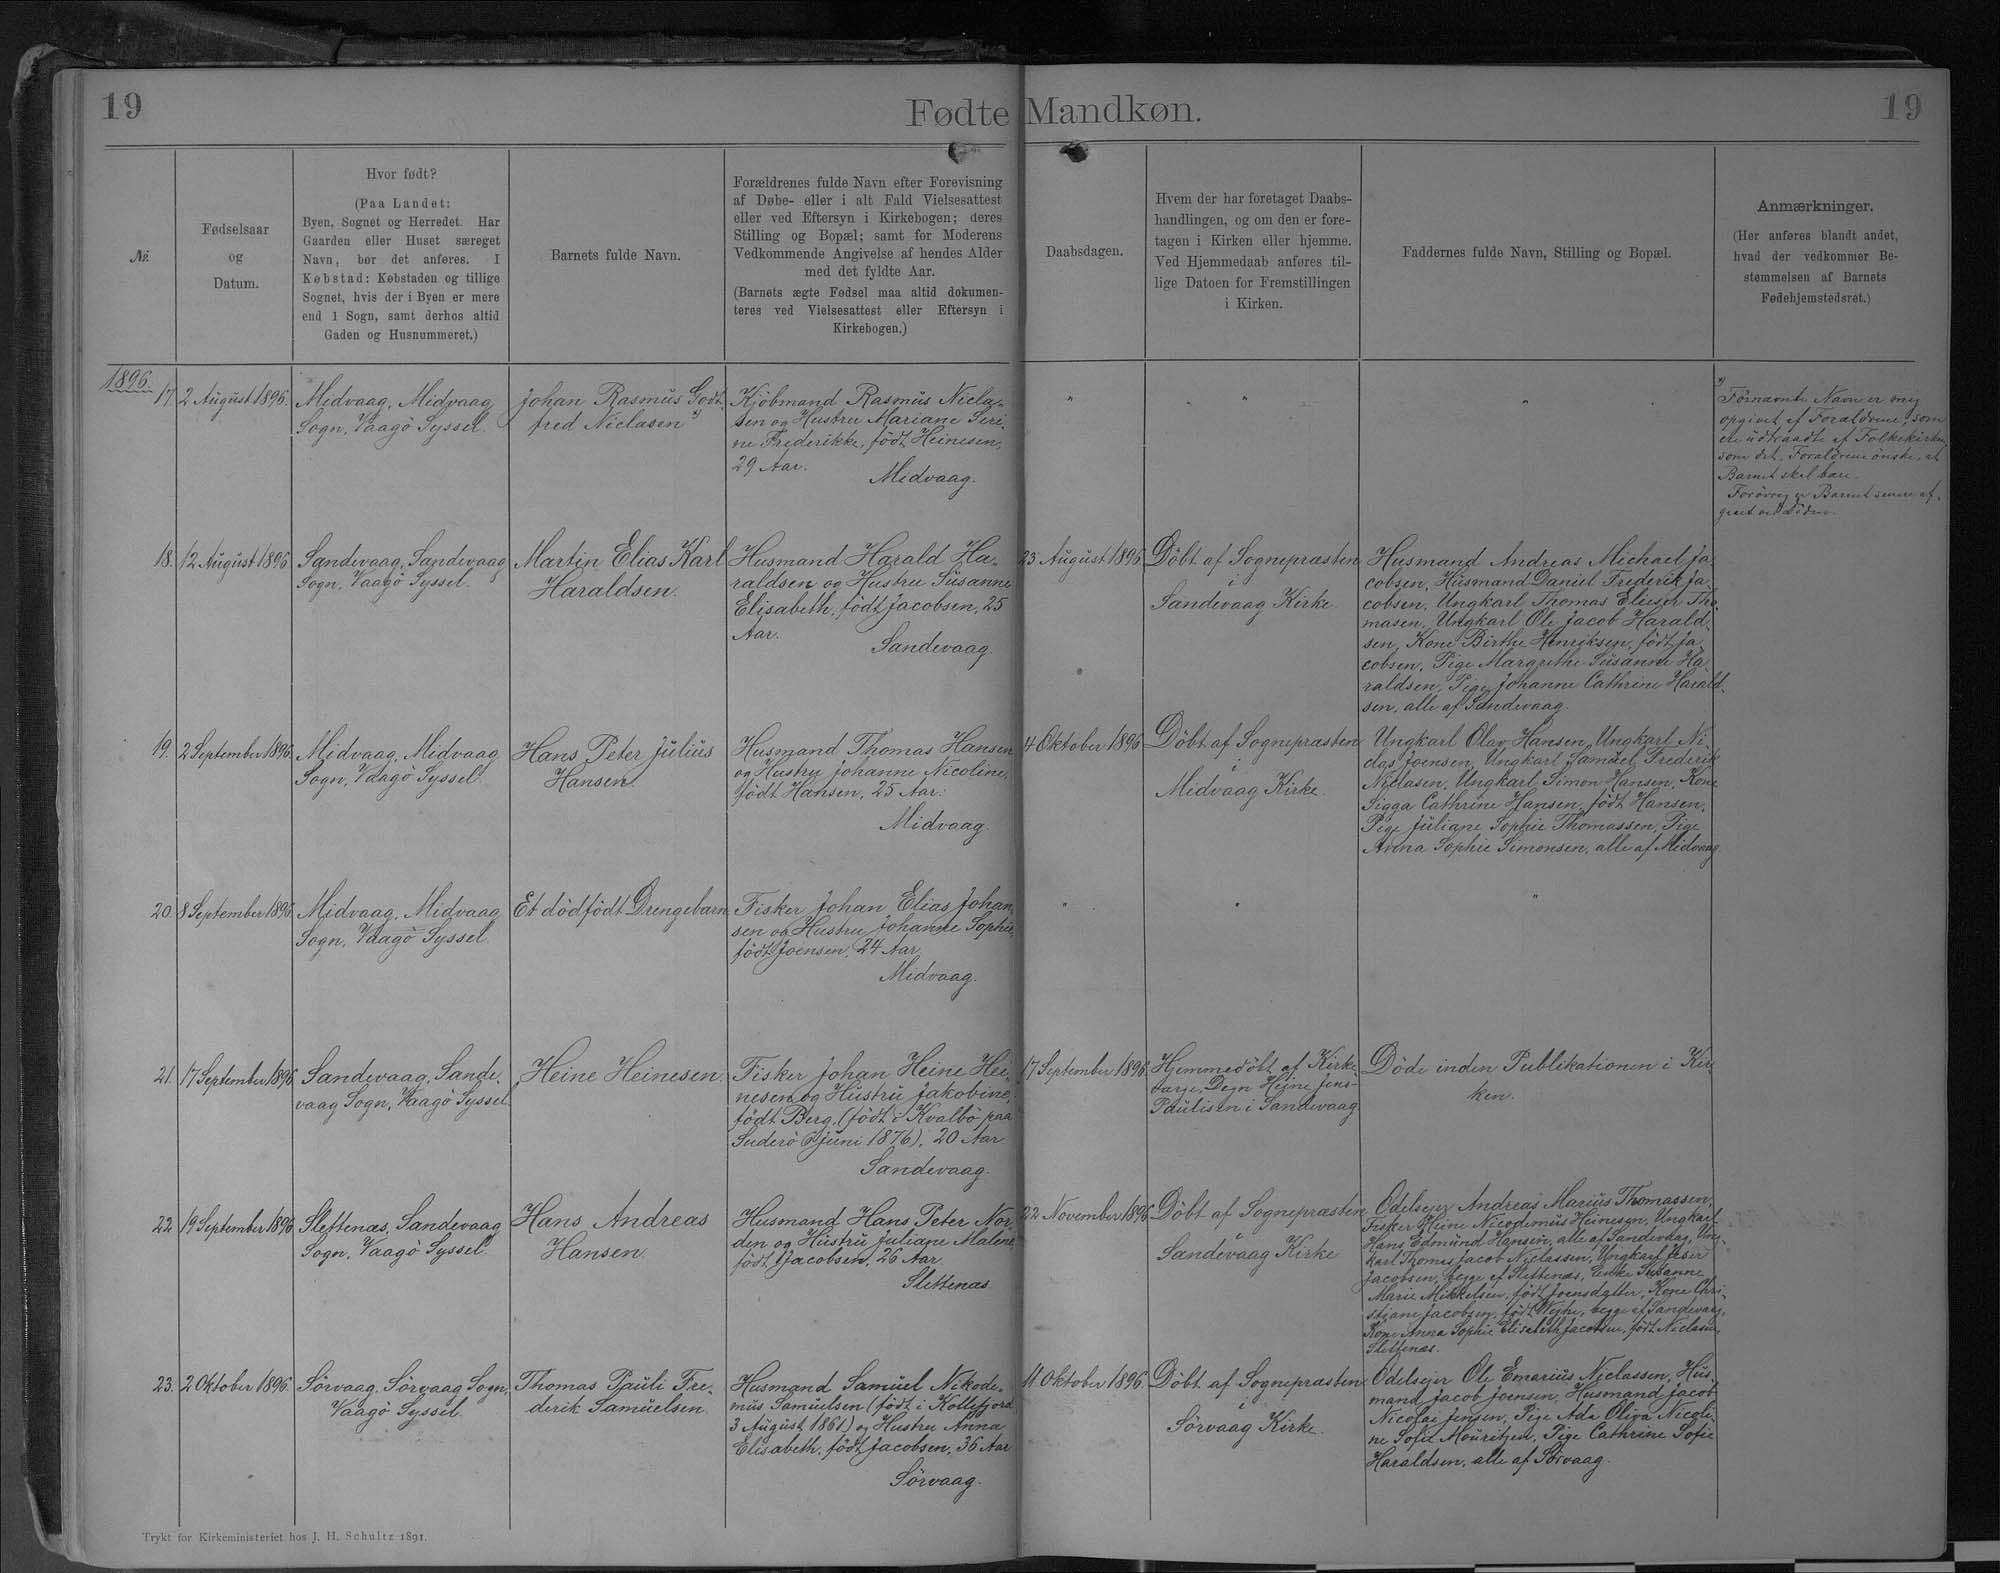 19
Fødte Mandkøn.
19
№.
Fødselsaar
og
Datum.
Hvor født?
(Paa Landet:
Byen, Sognet og Herredet. Har
Gaarden eller Huset særeget
Navn, bør det anføres. I
Købstad: Købstaden og tillige
Sognet, hvis der i Byen er mere
end 1 Sogn, samt derhos altid
Gaden og Husnummeret.)
Barnets fulde Navn.
Forældrenes fulde Navn efter Forevisning
af Døbe- eller i alt Fald Vielsesattest
eller ved Eftersyn i Kirkebogen; deres
Stilling og Bopæl; samt for Moderens
Vedkommende Angivelse af hendes Alder
med det fyldte Aar.
(Barnets ægte Fødsel maa altid dokumen-
teres ved Vielsesattest eller Eftersyn i
Kirkebogen.)
Daabsdagen.
Hvem der har foretaget Daabs-
handlingen, og om den er fore-
tagen i Kirken eller hjemme.
Ved Hjemmedaab anføres til-
lige Datoen for Fremstillingen
i Kirken.
Faddernes fulde Navn, Stilling og Bopæl.
Anmærkninger.
(Her anføres blandt andet,
hvad der vedkommer Be-
stemmelsen af Barnets
Fødehjemstedsret.)
1896.
17. 2 August 1896.
Midvaag, Midvaag
Sogn, Vaagö Syssel.
Johan Rasmus Godt-
fred Niclasen
Kjöbmand Rasmus Nicla-
sen og Hustru Mariane Seri-
ne Frederikke, födt Heinesen,
29 Aar.
Midvaag.
" " " "
Fornævnte Navn er mig
opgivet af Forældrene, som
ere udtraadte af Folkekirken,
som det, Forældrene önske, at
Barnet skal bære.
Forövrig er Barnet senere af-
gaaet ved Döden.
18. 12 August 1896
Sandevaag, Sandevaag
Sogn, Vaagö Syssel.
Martin Elias Karl
Haraldsen.
Husmand Harald Ha-
raldsen og Hustru Susanne
Elisabeth, födt Jacobsen, 25
Aar.
Sandevaag.
23 August 1896
Döbt af Sognepræsten
i
Sandevaag Kirke.
Husmand Andreas Michael Ja-
cobsen, Husmand Daniel Frederik Ja-
cobsen, Ungkarl Thomas Elieser Tho-
masen, Ungkarl Ole Jacob Harald-
sen, Kone Birthe Henriksen, födt Ja-
cobsen, Pige Margrethe Susanne Ha-
raldsen, Pige Johanne Cathrine Harald-
sen, alle af Sandevaag.
19. 2 September 1896.
Midvaag, Midvaag
Sogn, Vaagö Syssel.
Hans Peter Julius
Hansen.
Husmand Thomas Hansen
og Hustru Johanne Nicoline,
födt Hansen, 25 Aar.
Midvaag.
4 Oktober 1896
Döbt af Sognepræsten
i
Midvaag Kirke.
Ungkarl Olav Hansen, Ungkarl Ni-
clas Joensen, Ungkarl Samuel Frederik
Niclasen, Ungkarl Simon Hansen, Kone
Sigga Cathrine Hansen, födt Hansen,
Pige Juliane Sophie Thomassen, Pige
Anna Sophie Simonsen, alle af Midvaag.
20. 8 September 1896
Midvaag, Midvaag
Sogn, Vaagö Syssel.
Et dödfödt Drengebarn.
Fisker Johan Elias Johan-
sen og Hustru Johanne Sophie,
födt Joensen, 24 Aar.
Midvaag.
" " "
21. 17 September 1896
Sandevaag, Sande-
vaag Sogn, Vaagö Syssel.
Heine Heinesen.
Fisker Johan Heine Hei-
nesen og Hustru Jakobine,
födt Berg, (födt i Kvalbö paa
Suderö Juni 1876), 20 Aar.
Sandevaag.
17 September 1896
Hjemmedöbt af Kirke-
værge, Degn Heine Jens-
Paulisen i Sandevaag.
Döde inden Publikationen i Kir-
ken.
22 19 September 1896
Slettenæs, Sandevaag
Sogn, Vaagö Syssel.
Hans Andreas
Hansen.
Husmand Hans Peter Nor-
den og Hustru Juliane Malene,
födt Jacobsen, 26 Aar
Slettenæs.
22 November 1896
Döbt af Sognepræsten
i
Sandevaag Kirke
Odelsejer Andreas Marius Thomassen,
Fisker Heine Nicodemus Heinesen, Ungkarl
Hans Edmund Hansen, alle af Sandevaag, Ung-
karl Thomas Jacob Niclassen, Ungkarl
Jacobsen, begge af Slettenæs, Enke Susanne
Marie Mikkelsen, födt Joensdatter, Kone Chri-
stiane Jacobsen, födt Weihe, begge af Sandevaag,
Kone Anna Sophie Elisabeth Jacobsen, födt Niclasen,
Slettenæs.
23. 2 Oktober 1896.
Sörvaag, Sörvaag Sogn,
Vaagö Syssel.
Thomas Pauli Fre-
derik Samuelsen.
Husmand Samuel Nikode-
mus Samuelsen (födt i Kollefjord
3 August 1861) og Hustru Anna
Elisabeth, födt Jacobsen, 36 Aar
Sörvaag.
11 Oktober 1896.
Döbt af Sognepræsten
i
Sörvaag Kirke.
Odelsejer Ole Emarius Niclassen, Hus-
mand Jacob Joensen, Husmand Jacob
Nicolai Jensen, Pige Ada Oliva Nicoli-
ne Sofie Mouritzen, Pige Cathrine Sofie
Haraldsen, alle af Sörvaag.
Trykt for Kirkeministeriet hos J. H. Schultz 1891.